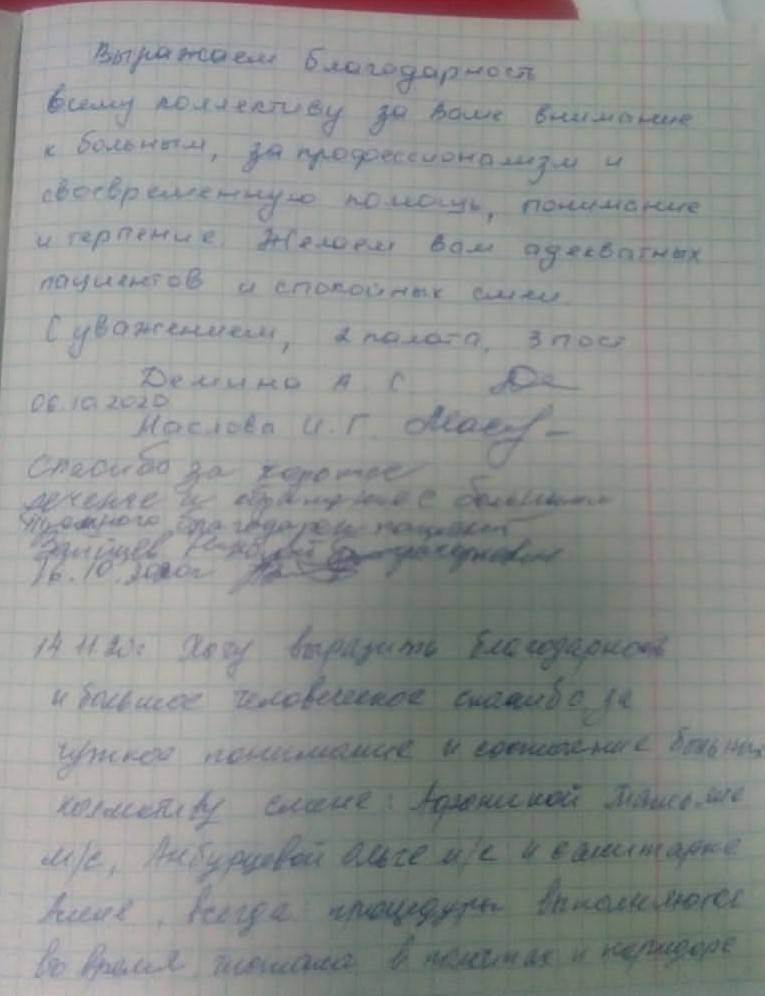 Выражаем благодарность
всему коллективу за ваше внимание
к больным, за профессионализм и
своевременную помощь, понимание
и терпение. Желаем вам адекватных
пациентов и спокойных смен.
С уважением, 2 палата, 3 пост
Демина А. С.
06.10.2020
Маслова И. Г.
Спасибо за хорошее
лечение и обращение с больными
благодарен пациент
16.10.2020г
14.11.20г Хочу выразить благодарность
и большое человеческое спасибо за
понимание и больных
коллективу смене:
м/с, Анбурцевой Ольге м/с и санитарке
Алене, всегда процедуры выполняются
во время, в палатах и коридоре